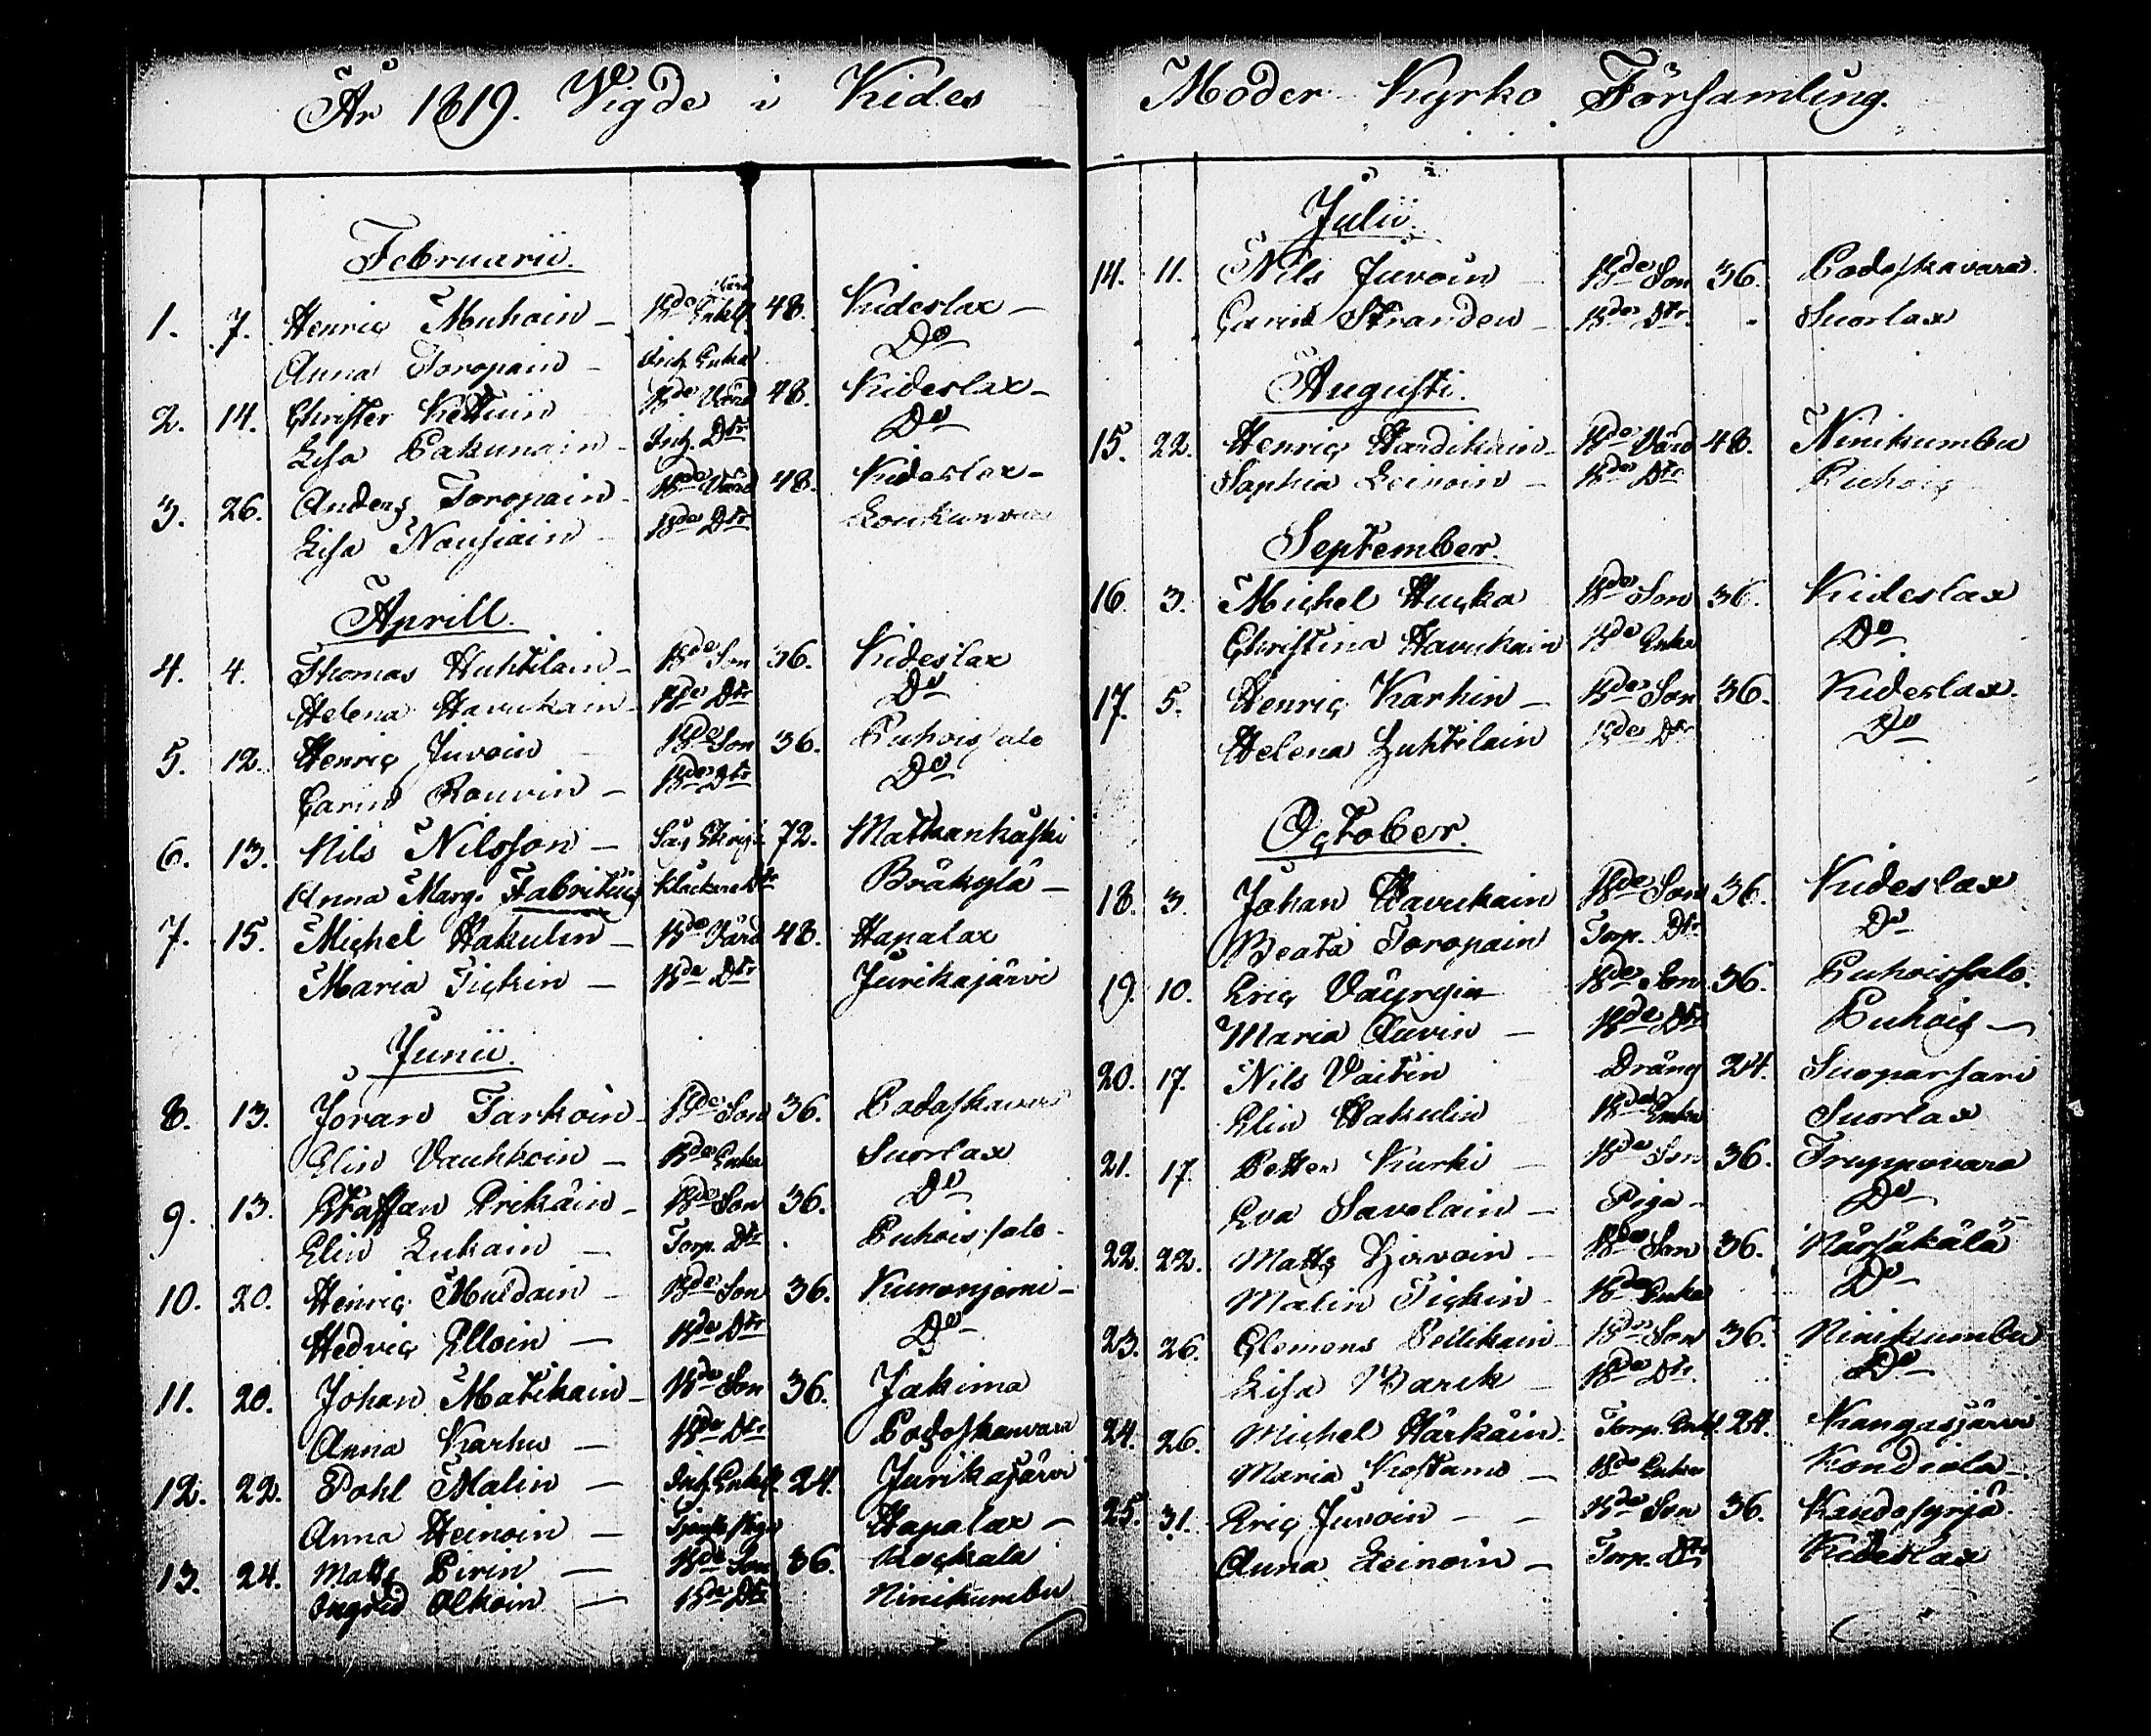 År 1819. Vigde i Kides
Februarii.
1. 7. Henric Muhoin – Bde Enkl. 48. Kideslax –
Anna Toropain – Inh. Enka Do
2. 14. Christer Kettuin Bde Värd 48. Kideslax –
Lisa Pakunain – Inh. Dtr Do
3. 26. Anders Toropain – Bde Värd 48. Kideslax –
Lisa Nousiain – Bde Dtr
Aprill.
4. 4. Thomas Huhtilain – Bde Son 36. Kideslax
Helena Havukain – Bde Dtr Do
5. 12. Henric Juvoin – Bde Son 36. Puhoissalo
Carin Rouvin – Bde Dtr Do
6. 13. Nils Nilsson – Såg 72. Matkankåski
Anna Marg. Fabritius Klåckare Dtr Bråkylä –
7. 15. Michel Hakulin – Bde Värd 48. Hapalax
Maria Tickin – Bde Dtr Jurikajärvi
Junii.
8. 13. Jöran Tarkoin – Bde Son 36. Podoskavara
Elin Vauhkoin – Bde Enka Suorlax
9. 13. Staffan Erikäin – Bde Son 36. Do
Elin Lukain – Torp. Dtr Puhoissalo –
10. 20. Henric Muldain – Bde Son 36. Kunonjemi –
Hedvig Elloin – Bde Dtr Do
11. 20. Johan Matikain – Bde Son 36. Jakima
Anna Karhu – Bde Dtr Podoskavara
12. 22. Pohl Malin – Inh. Enkl. 24. Jurikajärvi
Anna Heinoin – Hapalax –
13. 24. Matts Pirin – Bde Son 36. Kockala
Ingrid Olkoin – Bde Dtr Ninikumbu
Moder Kyrko Församling.
Julii.
14. 11. Nils Juvoin – Bde Son 36. Podoskavara.
Carin Stranden – Bde Dtr Suorlax
Augusti.
15. 22. Henric Hardikain – Bde Värd 48. Ninikumbu
Sophia Leinoin – Bde Dtr Puhois
September.
16. 3. Michel Hucka Bde Son 36. Kideslax
Christina Havukain Bde Enka Do
17. 5. Henric Karhin – Bde Son 36. Kideslax.
Helena Huhtilain Bde Dtr Do
October.
18. 3. Johan Havukain Bde Son 36. Kideslax
Beata Toropain Torp. Dtr Do
19. 10. Eric Väyryin Bde Son 36. Puhoissalo.
Maria Auvin – Bde Dtr Puhois –
20. 17. Nils Vaitin Dräng 24. Suoparsari
Elin Hakulin Bde Enka Suorlax
21. 17. Petter Kurki – Bde Son 36. Truppovara
Eva Savolain – Piga – Do
22. 22. Matts Hirvoin – Bde Son 36. Närsäkälä
Malin Tickin – Bde Enka Do
23. 26. Clemens Pellikain – Bde Son 36. Ninikumbu
Lisa Warik – Bde Dtr Do
24. 26. Michel Härkäin. Torp. Enkl. 24. Kangasjärvi
Maria Kostamo – Bde Enka Kondiola –
25. 31. Eric Juvoin – – Bde Son 36. Kandosyrjä
Anna Leinoin – Torp. Dtr Kideslax